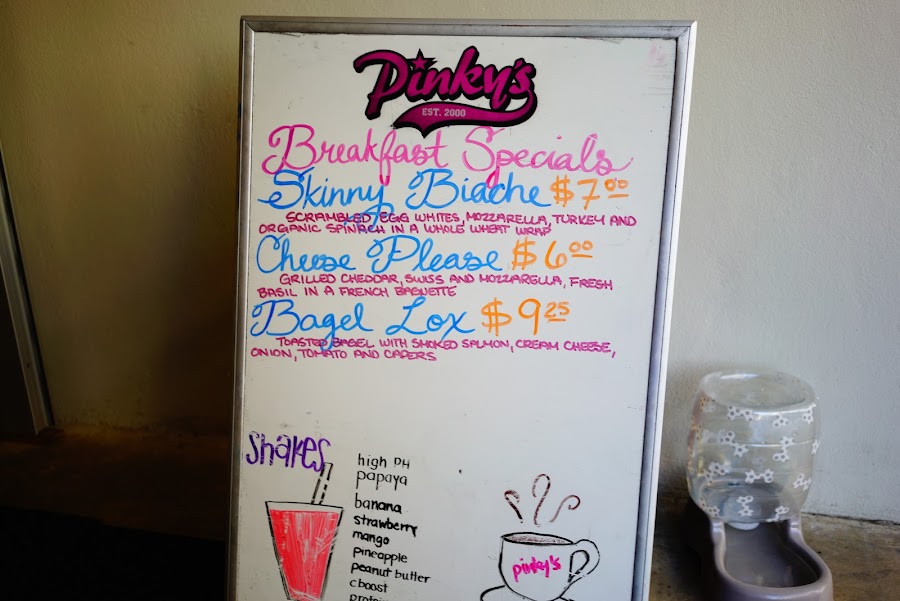 Pinky's
EST. 2000
Breakfast Specials
Skinny Biache $7.00
SCRAMBLED EGG WHITES, MOZZARELLA, TURKEY AND
ORGANIC SPINACH IN A WHOLE WHEAT WRAP
Cheese Please $6.00
GRILLED CHEDDAR, SWISS AND MOZZARELLA, FRESH
BASIL IN A FRENCH BAGUETTE
Bagel Lox $9.25
TOASTED BAGEL WITH SMOKED SALMON, CREAM CHEESE,
ONION, TOMATO AND CAPERS
Shakes
high PH
papaya
banana
strawberry
mango
pineapple
peanut butter
c boost
protein
pinky's